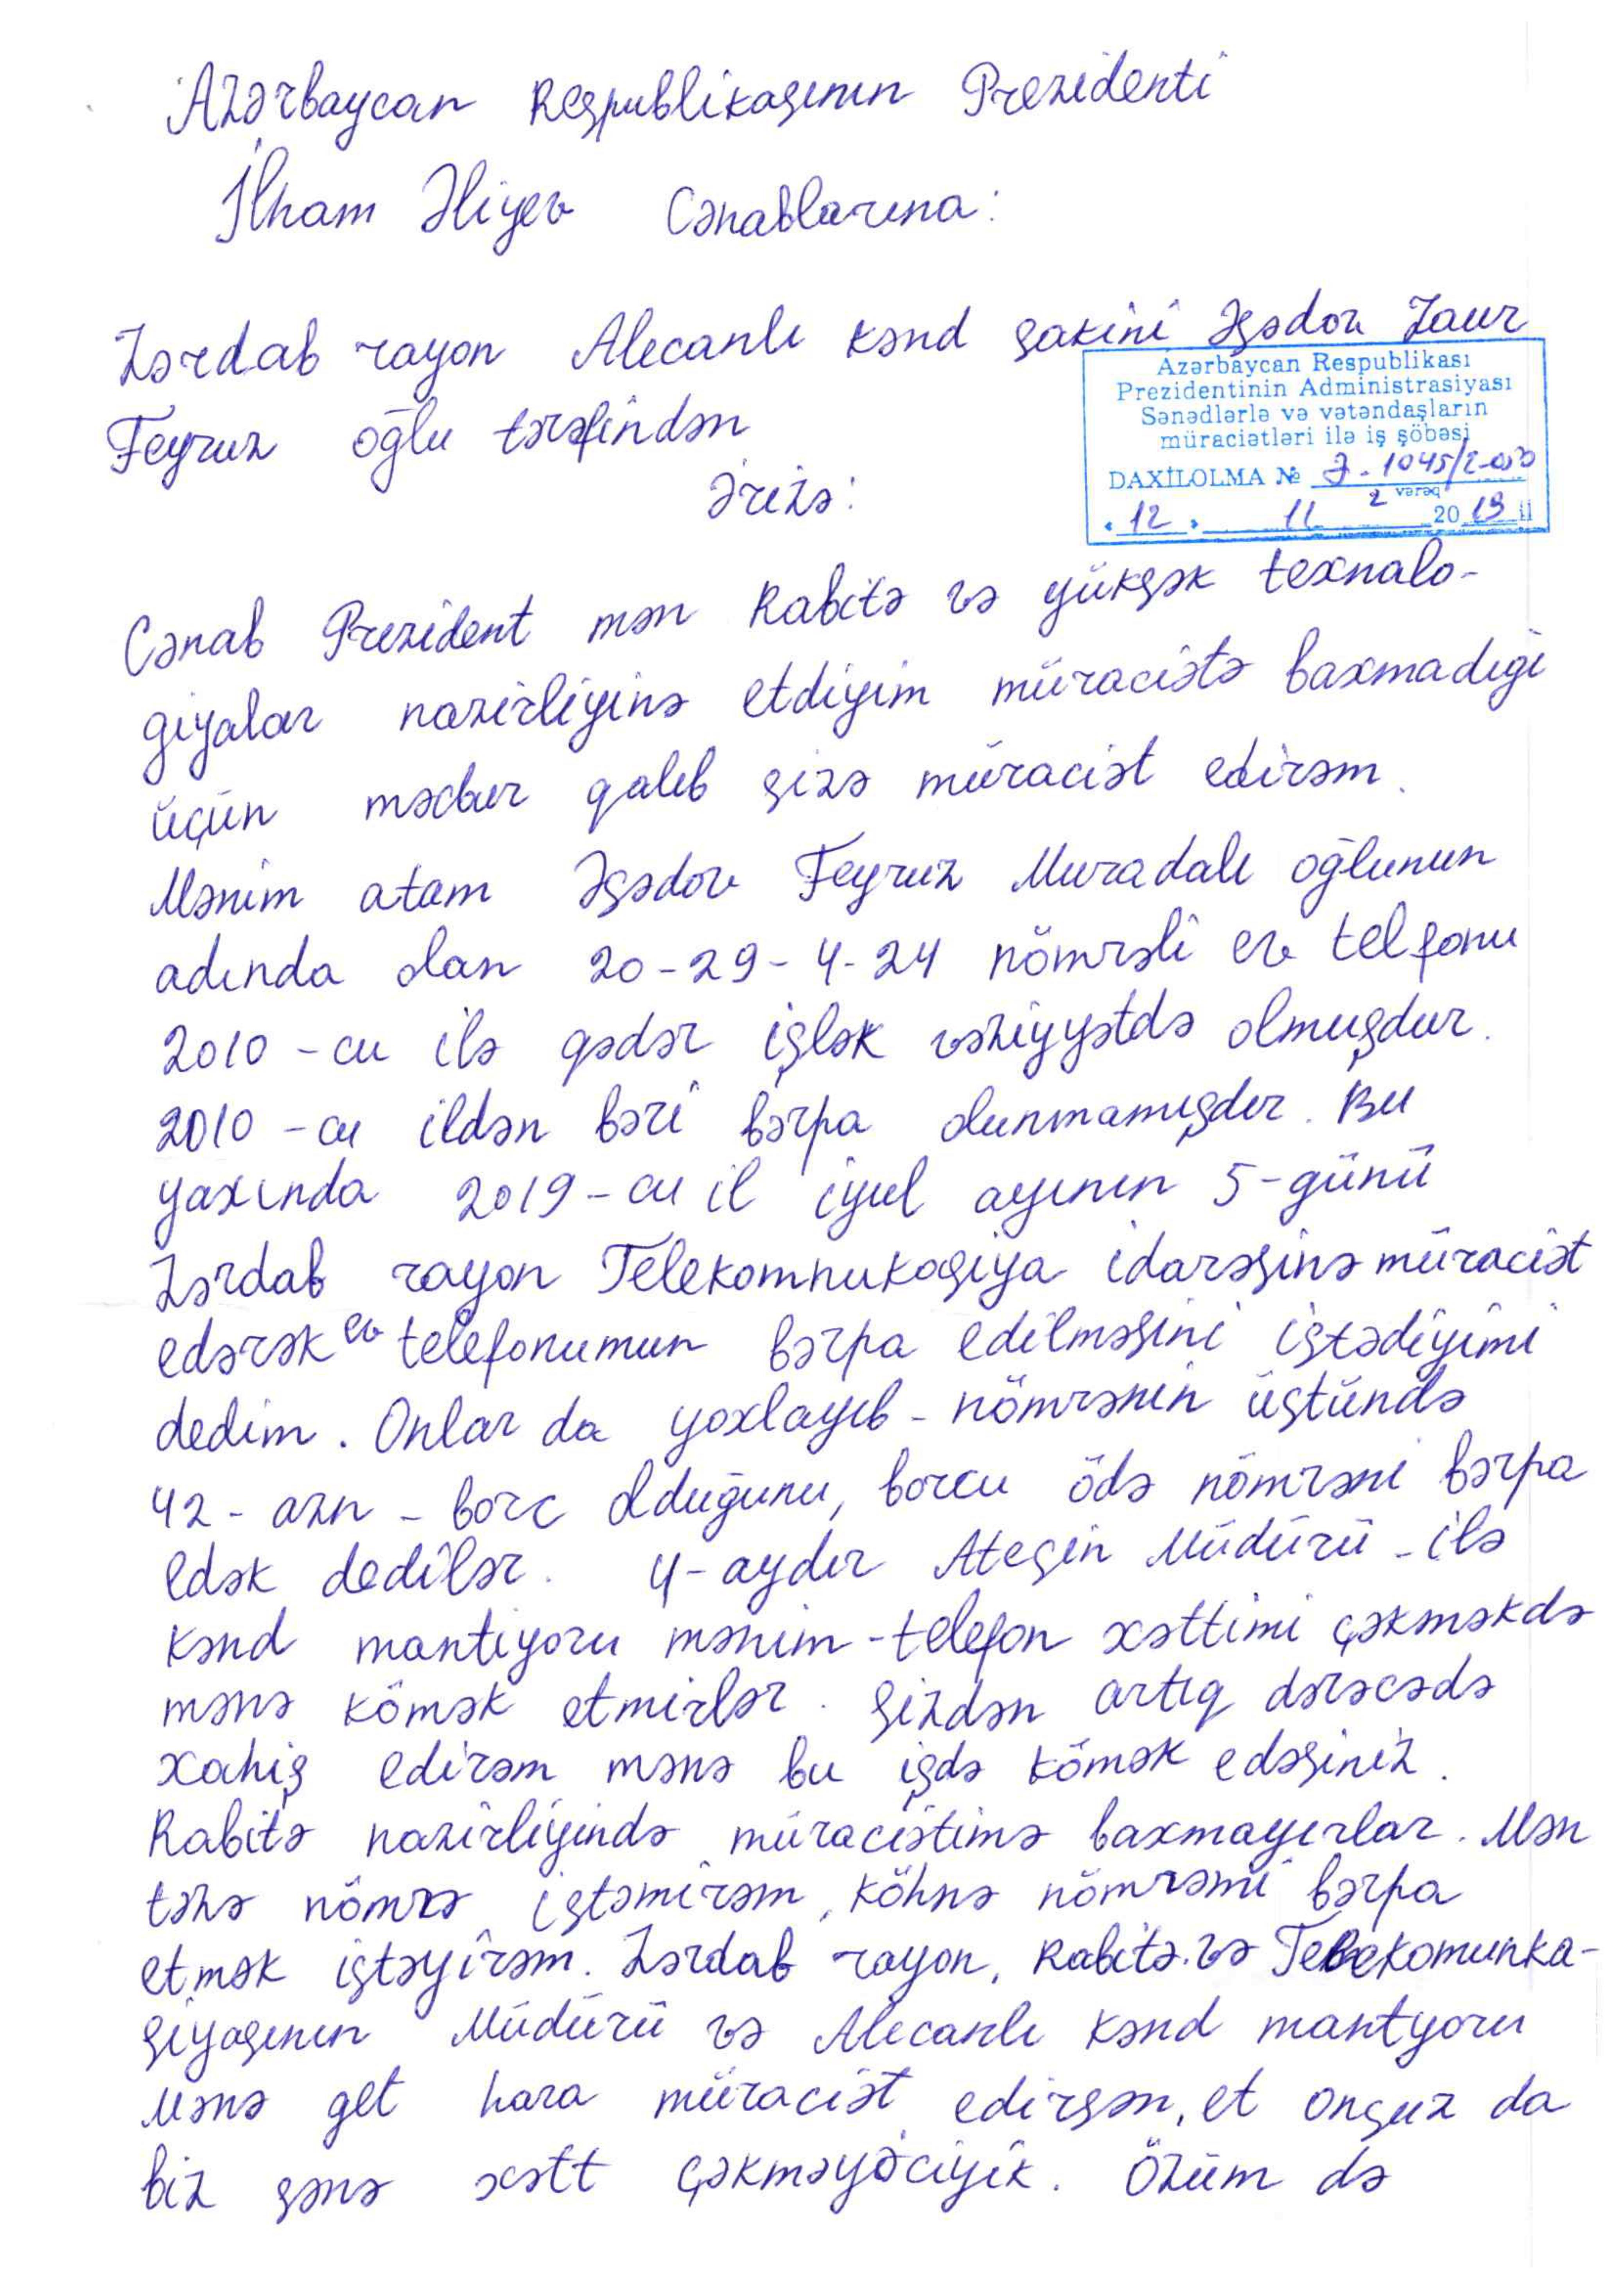 Azərbaycan Respublikasının Prezidenti
İlham Əliyev Cənablarına:
Zərdab rayon Alıcanlı kənd sakini Əsədov Zaur
Azərbaycan Respublikası
Prezidentinin Administrasiyası
Sənədlərlə və vətəndaşların
müraciətləri ilə iş şöbəsi
DAXİLOLMA №
2 vərəq
"12" 11 2019 il
Feyruz oğlu tərəfindən
Ərizə:
Cənab Prezident mən Rabitə və yüksək texnalo-
giyalar nazirliyinə etdiyim müraciətə baxmadığı
üçün məcbur qalıb sizə müraciət edirəm.
Mənim atam Əsədov Feyruz Muradalı oğlunun
adında olan 20-29-4-24 nömrəli ev telfonu
2010-cu ilə qədər işlək vəziyyətdə olmuşdur.
2010-cu ildən bəri bərpa olunmamışdır. Bu
yaxında 2019-cu il iyul ayının 5-günü
Zərdab rayon Telekomnukasiya idarəsinə müraciət
edərək ev telefonumun bərpa edilməsini istədiyimi
dedim. Onlar da yoxlayıb - nömrənin üstündə
42 - azn - borc olduğunu, borcu ödə nömrəni bərpa
edək dedilər. 4-aydır Atesin Müdürü - ilə
kənd mantiyoru mənim - telefon xəttimi çəkməkdə
mənə kömək etmirlər. Sizdən artıq dərəcədə
xahiş edirəm mənə bu işdə kömək edəsiniz.
Rabitə nazirliyində müraciətimə baxmayırlar. Mən
təzə nömrə istəmirəm, köhnə nömrəmi bərpa
etmək istəyirəm. Zərdab rayon, Rabitə və Telekomunka-
siyasının Müdürü və Alıcanlı kənd mantyoru
Mənə get hara müraciət edirsən, et onsuz da
biz sənə xətt çəkməyəciyik. Özüm də